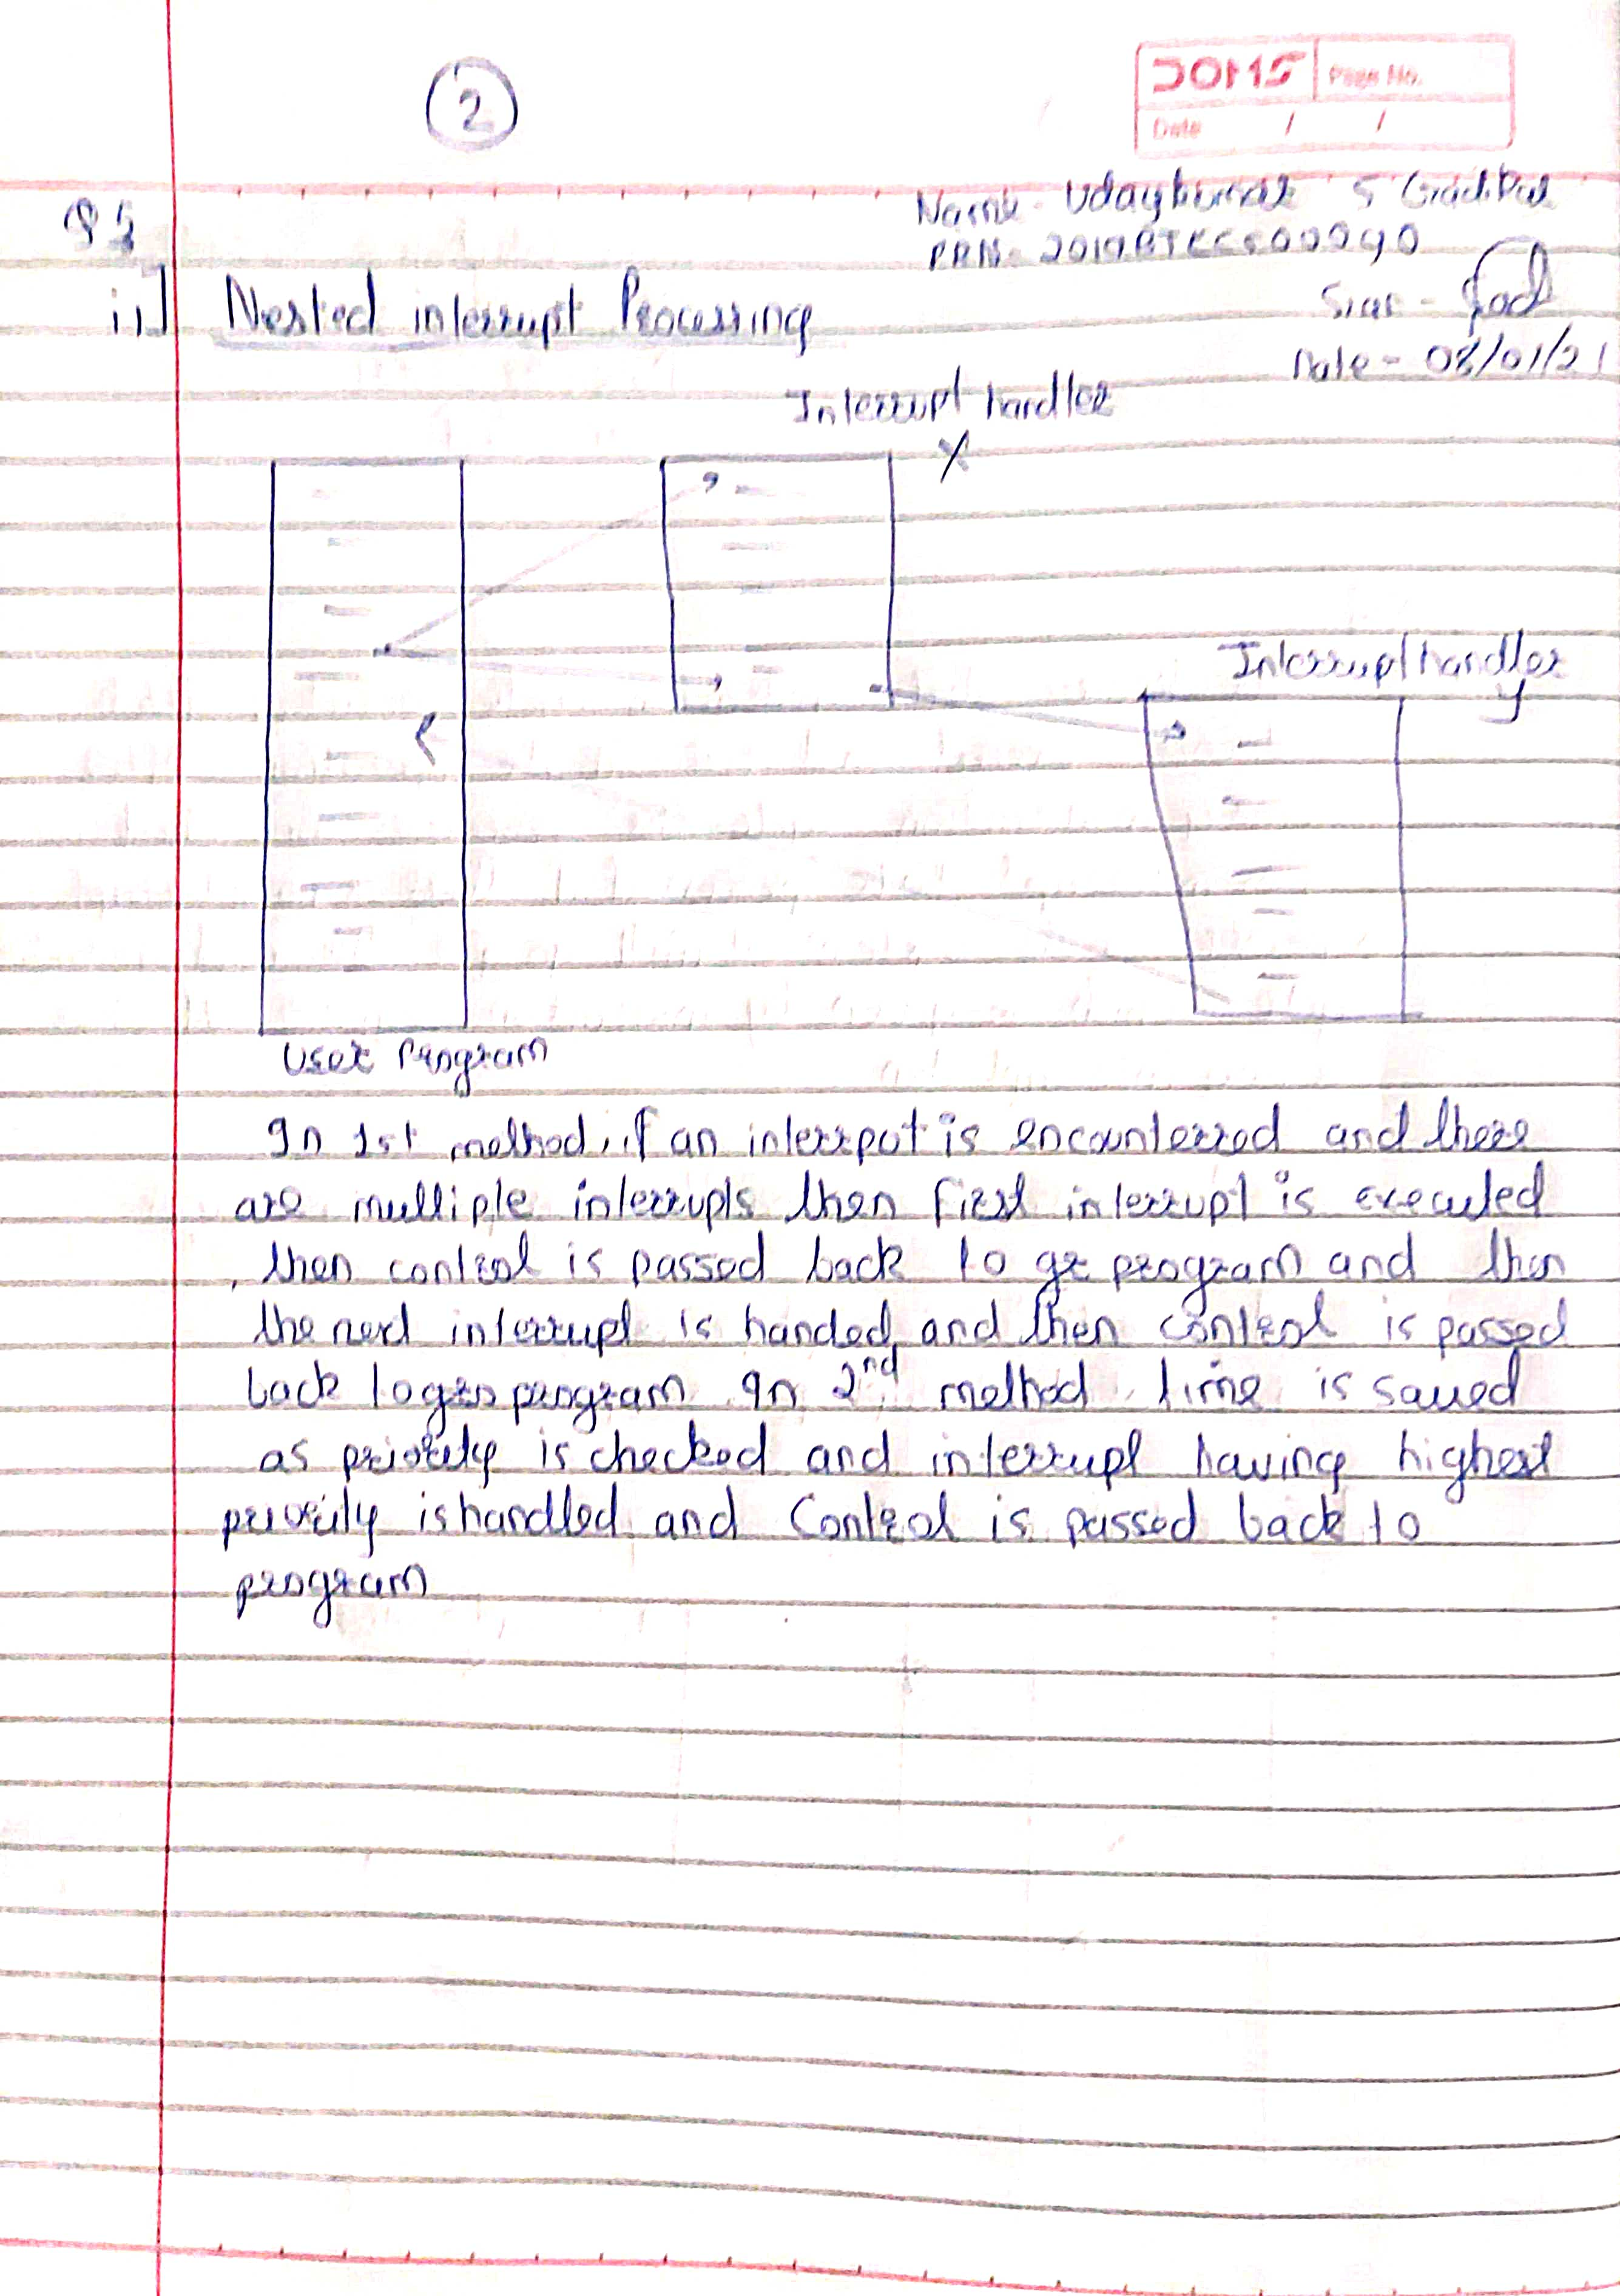 2
DOMS Page No.
Date / /
Name - Udaykumar S Gadikar
PRN-
Q5
ii] Nested interrupt Processing
Sign -
Date - 08/01/21
Interrupt handler
X
Interrupt handler
y
User Program
In 1st method, if an interrput is encounterred and there
are multiple interrupts then first interrupt is executed
, then control is passed back to program and then
the next interrupt is handed and then control is passed
back to program. In 2nd method, time is saved
as priority is checked and interrupt having highest
priority is handled and Control is passed back to
program